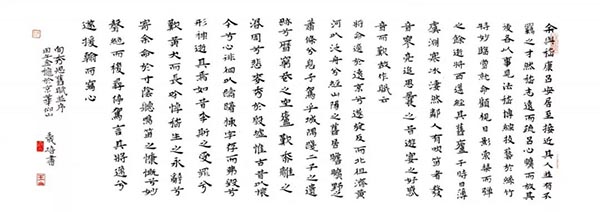 余與嵇康呂安居止接近其人並有不
羈之才然嵇志遠而疏呂心曠而放其
後各以事見法嵇博綜技藝於絲竹
特妙臨當就命顧視日影索琴而彈
之餘逝將西邁經其舊廬于時日薄
虞淵寒冰淒然鄰人有吹笛者發
音寥亮追思曩之昔遊宴之好感
音而歎故作賦云
將命適於遠京兮遂旋反而北徂濟黃
河以泛舟兮經山陽之舊居瞻曠野之
蕭條兮息予駕乎城隅踐二子之遺
跡兮歷窮巷之空廬歎黍離之
愍周兮悲麥秀於殷墟惟古昔以懷
今兮心徘徊以躊躇棟宇存而弗毀兮
形神逝其焉如昔李斯之受罪兮
歎黃犬而長吟悼嵇生之永辭兮
寄余命於寸陰聽鳴笛之慷慨兮妙
聲絕而復尋停駕言其將邁兮
遂援翰而寫心
向秀思舊賦並序
於京華仙山
書